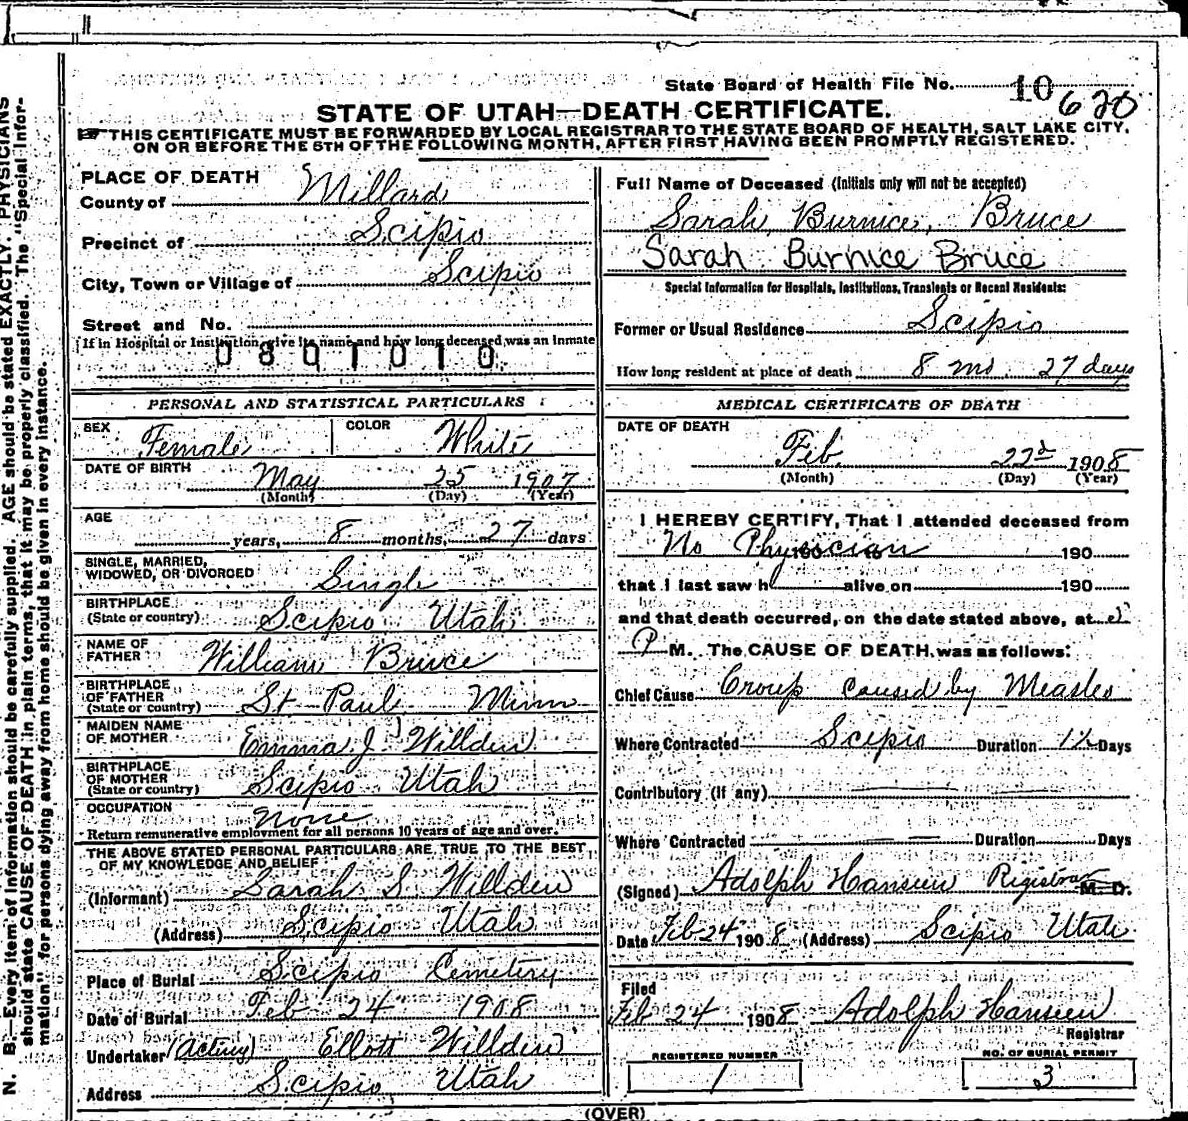 State Board of Health File No. 10 620
STATE OF UTAH—DEATH CERTIFICATE.
THIS CERTIFICATE MUST BE FORWARDED BY LOCAL REGISTRAR TO THE STATE BOARD OF HEALTH, SALT LAKE CITY,
ON OR BEFORE THE 5TH OF THE FOLLOWING MONTH, AFTER FIRST HAVING BEEN PROMPTLY REGISTERED.
PLACE OF DEATH
County of Millard
Precinct of Scipio
City, Town or Village of Scipio
Street and No.
If in Hospital or Institution, give its name and how long deceased was an Inmate
0801010
PERSONAL AND STATISTICAL PARTICULARS
SEX Female COLOR White
DATE OF BIRTH May 25 1907
(Month) (Day) (Year)
AGE
years, 8 months, 27 days
SINGLE, MARRIED,
WIDOWED, OR DIVORCED Single
BIRTHPLACE
(State or country) Scipio Utah
NAME OF
FATHER William Bruce
BIRTHPLACE
OF FATHER
(State or country) St Paul Minn
MAIDEN NAME
OF MOTHER Emma J Willden
BIRTHPLACE
OF MOTHER
(State or country) Scipio Utah
OCCUPATION None
Return remunerative employment for all persons 10 years of age and over.
THE ABOVE STATED PERSONAL PARTICULARS ARE TRUE TO THE BEST
OF MY KNOWLEDGE AND BELIEF
(Informant) Sarah S. Willden
(Address) Scipio Utah
Place of Burial Scipio Cemetery
Date of Burial Feb 24 1908
Undertaker (Acting) Ellott Willden
Address Scipio Utah
Full Name of Deceased (Initials only will not be accepted)
Sarah Burnice, Bruce
Sarah Burnice Bruce
Special Information for Hospitals, Institutions, Transients or Recent Residents:
Former or Usual Residence Scipio
How long resident at place of death 8 mo 27 days
MEDICAL CERTIFICATE OF DEATH
DATE OF DEATH
Feb. 22d 1908
(Month) (Day) (Year)
I HEREBY CERTIFY, That I attended deceased from
No Physician 190
that I last saw h alive on 190
and that death occurred, on the date stated above, at
P M. The CAUSE OF DEATH was as follows:
Chief Cause Croup caused by Measles
Where Contracted Scipio Duration Days
Contributory (if any)
Where Contracted Duration Days
(Signed) Adolph Hanseen Registrar M. D.
Date Feb 24 1908 (Address) Scipio Utah
Filed
Feb 24 1908 Adolph Hanseen
Registrar
REGISTERED NUMBER
1
NO. OF BURIAL PERMIT
3
(OVER)
N. B.—Every item of information should be carefully supplied. AGE should be stated EXACTLY. PHYSICIANS
should state CAUSE OF DEATH in plain terms, that it may be properly classified. The "Special Infor-
mation" for persons dying away from home should be given in every instance.